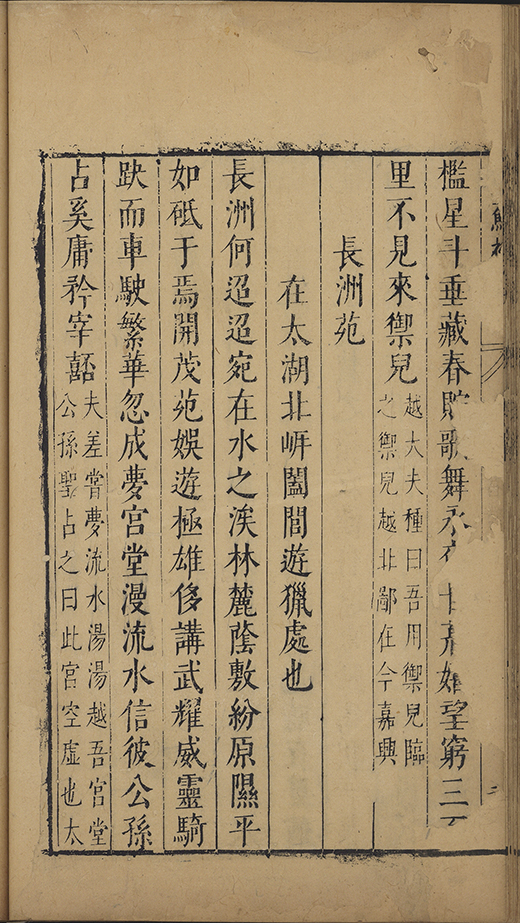 檻星斗垂藏春貯歌舞永夜 望窮三百
里不見來禦兒越大夫種曰吾用禦兒臨
之禦兒越北鄙在今嘉興
長洲苑
在太湖北岍闔閭遊獵處也
長洲何迢迢宛在水之涘林麓蔭敷紛原隰平
如砥于焉開茂苑娛遊極雄侈講武耀威靈騎
趹而車駛繁華忽成夢宮堂漫流水信彼公孫
占奚庸矜宰嚭夫差嘗夢流水湯湯越吾宮堂
公孫聖占之曰此宮空虛也太